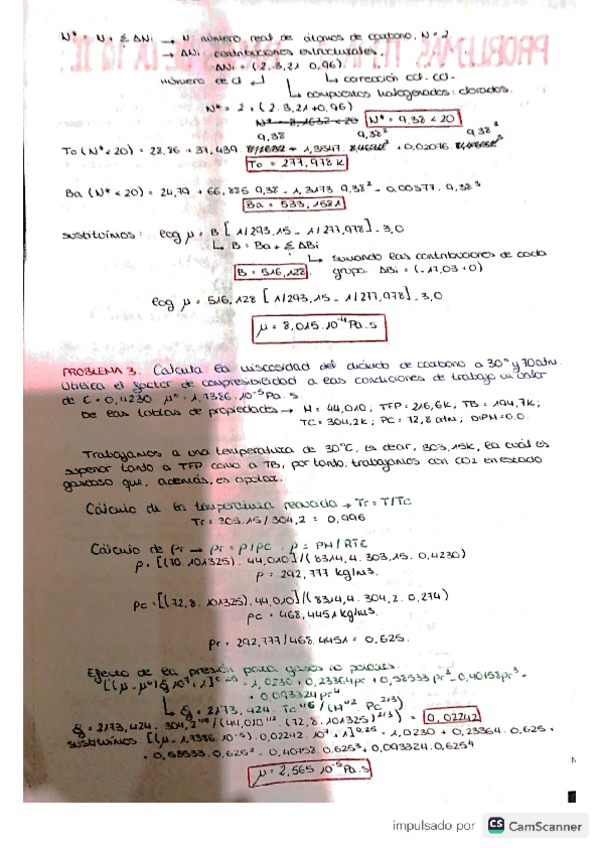 N* = N + Σ ΔNi → N: número real de átomos de carbono, N = 2
→ ΔNi: contribuciones estructurales.
ΔNi = (2 · 3,21 0,96)
número de cl ↲ ↳ corrección CCl - CCl -
↳ compuestos halogenados: clorados.
N* = 2 + (2 · 3,21 + 0,96)
N* = 9,38 < 20
9,38 9,38² 9,38³
To (N* < 20) = 28,86 + 37,439 · 1,3547 · + 0,02076 ·
To = 277,978 K
Ba (N* < 20) = 24,79 + 66,885 · 9,38 - 1,3173 · 9,38² - 0,00377 · 9,38³
Ba = 533,1581
sustituimos: log μ = B [1/293,15 - 1/277,978] - 3,0
↳ B = Ba + Σ ΔBi
↳ sumando las contribuciones de cada
B = 516,128 grupo. ΔBi = (-17,03 + 0)
log μ = 516,128 [1/293,15 - 1/277,978] - 3,0
μ = 8,015 · 10⁻⁴ Pa · s
PROBLEMA 3. Calcula la viscosidad del dióxido de carbono a 30º y 70 atm.
Utiliza el factor de compresibilidad a las condiciones de trabajo un valor
de C = 0,4230 μº = 1,7386 · 10⁻⁵ Pa · s
De las tablas de propiedades → M = 44,010; TFP = 216,6K; TB = 194,7K;
TC = 304,2K; PC = 72,8 atm; DIPM = 0.0
Trabajamos a una temperatura de 30ºC, es decir, 303,15K, la cual es
superior tanto a TFP como a TB, por tanto, trabajamos con CO2 en estado
gaseoso que, además, es apolar.
Cálculo de la temperatura reducida → Tr = T/TC
Tr = 303.15 / 304,2 = 0,996
Cálculo de ρr → ρr = ρ/ρc · ρ = PM/RTZ
ρ = [(70 · 101325) · 44,010] / (8314,4 · 303,15 · 0,4230)
ρ = 292,777 kg/m3.
ρc = [(72,8 · 101325) · 44,010] / (8314,4 · 304,2 · 0,274)
ρc = 468,4451 kg/m3.
ρr = 292,777 / 468,4451 = 0,625.
Efecto de la presión para gases no polares.
[(μ - μº) ξ 10⁷ + 1]^0.25 = 1,0230 + 0,23364 ρr + 0,58533 ρr² - 0,40758 ρr³ -
+ 0,093324 ρr⁴
↳ ξ = 2173,424 · Tc^1/6 / (M^1/2 · Pc^2/3)
ξ = 2173,424 · 304,2^1/6 / (44,010^1/2 · (72,8 · 101325)^2/3) = 0,02242
sustituimos [(μ - 1,7386 · 10⁻⁵) · 0,02242 · 10⁷ + 1]^0,25 = 1,0230 + 0,23364 · 0,625 +
+ 0,58533 · 0,625² - 0,40758 · 0,625³ + 0,093324 · 0,625⁴
μ = 2,565 · 10⁻⁵ Pa · s
impulsado por CS CamScanner